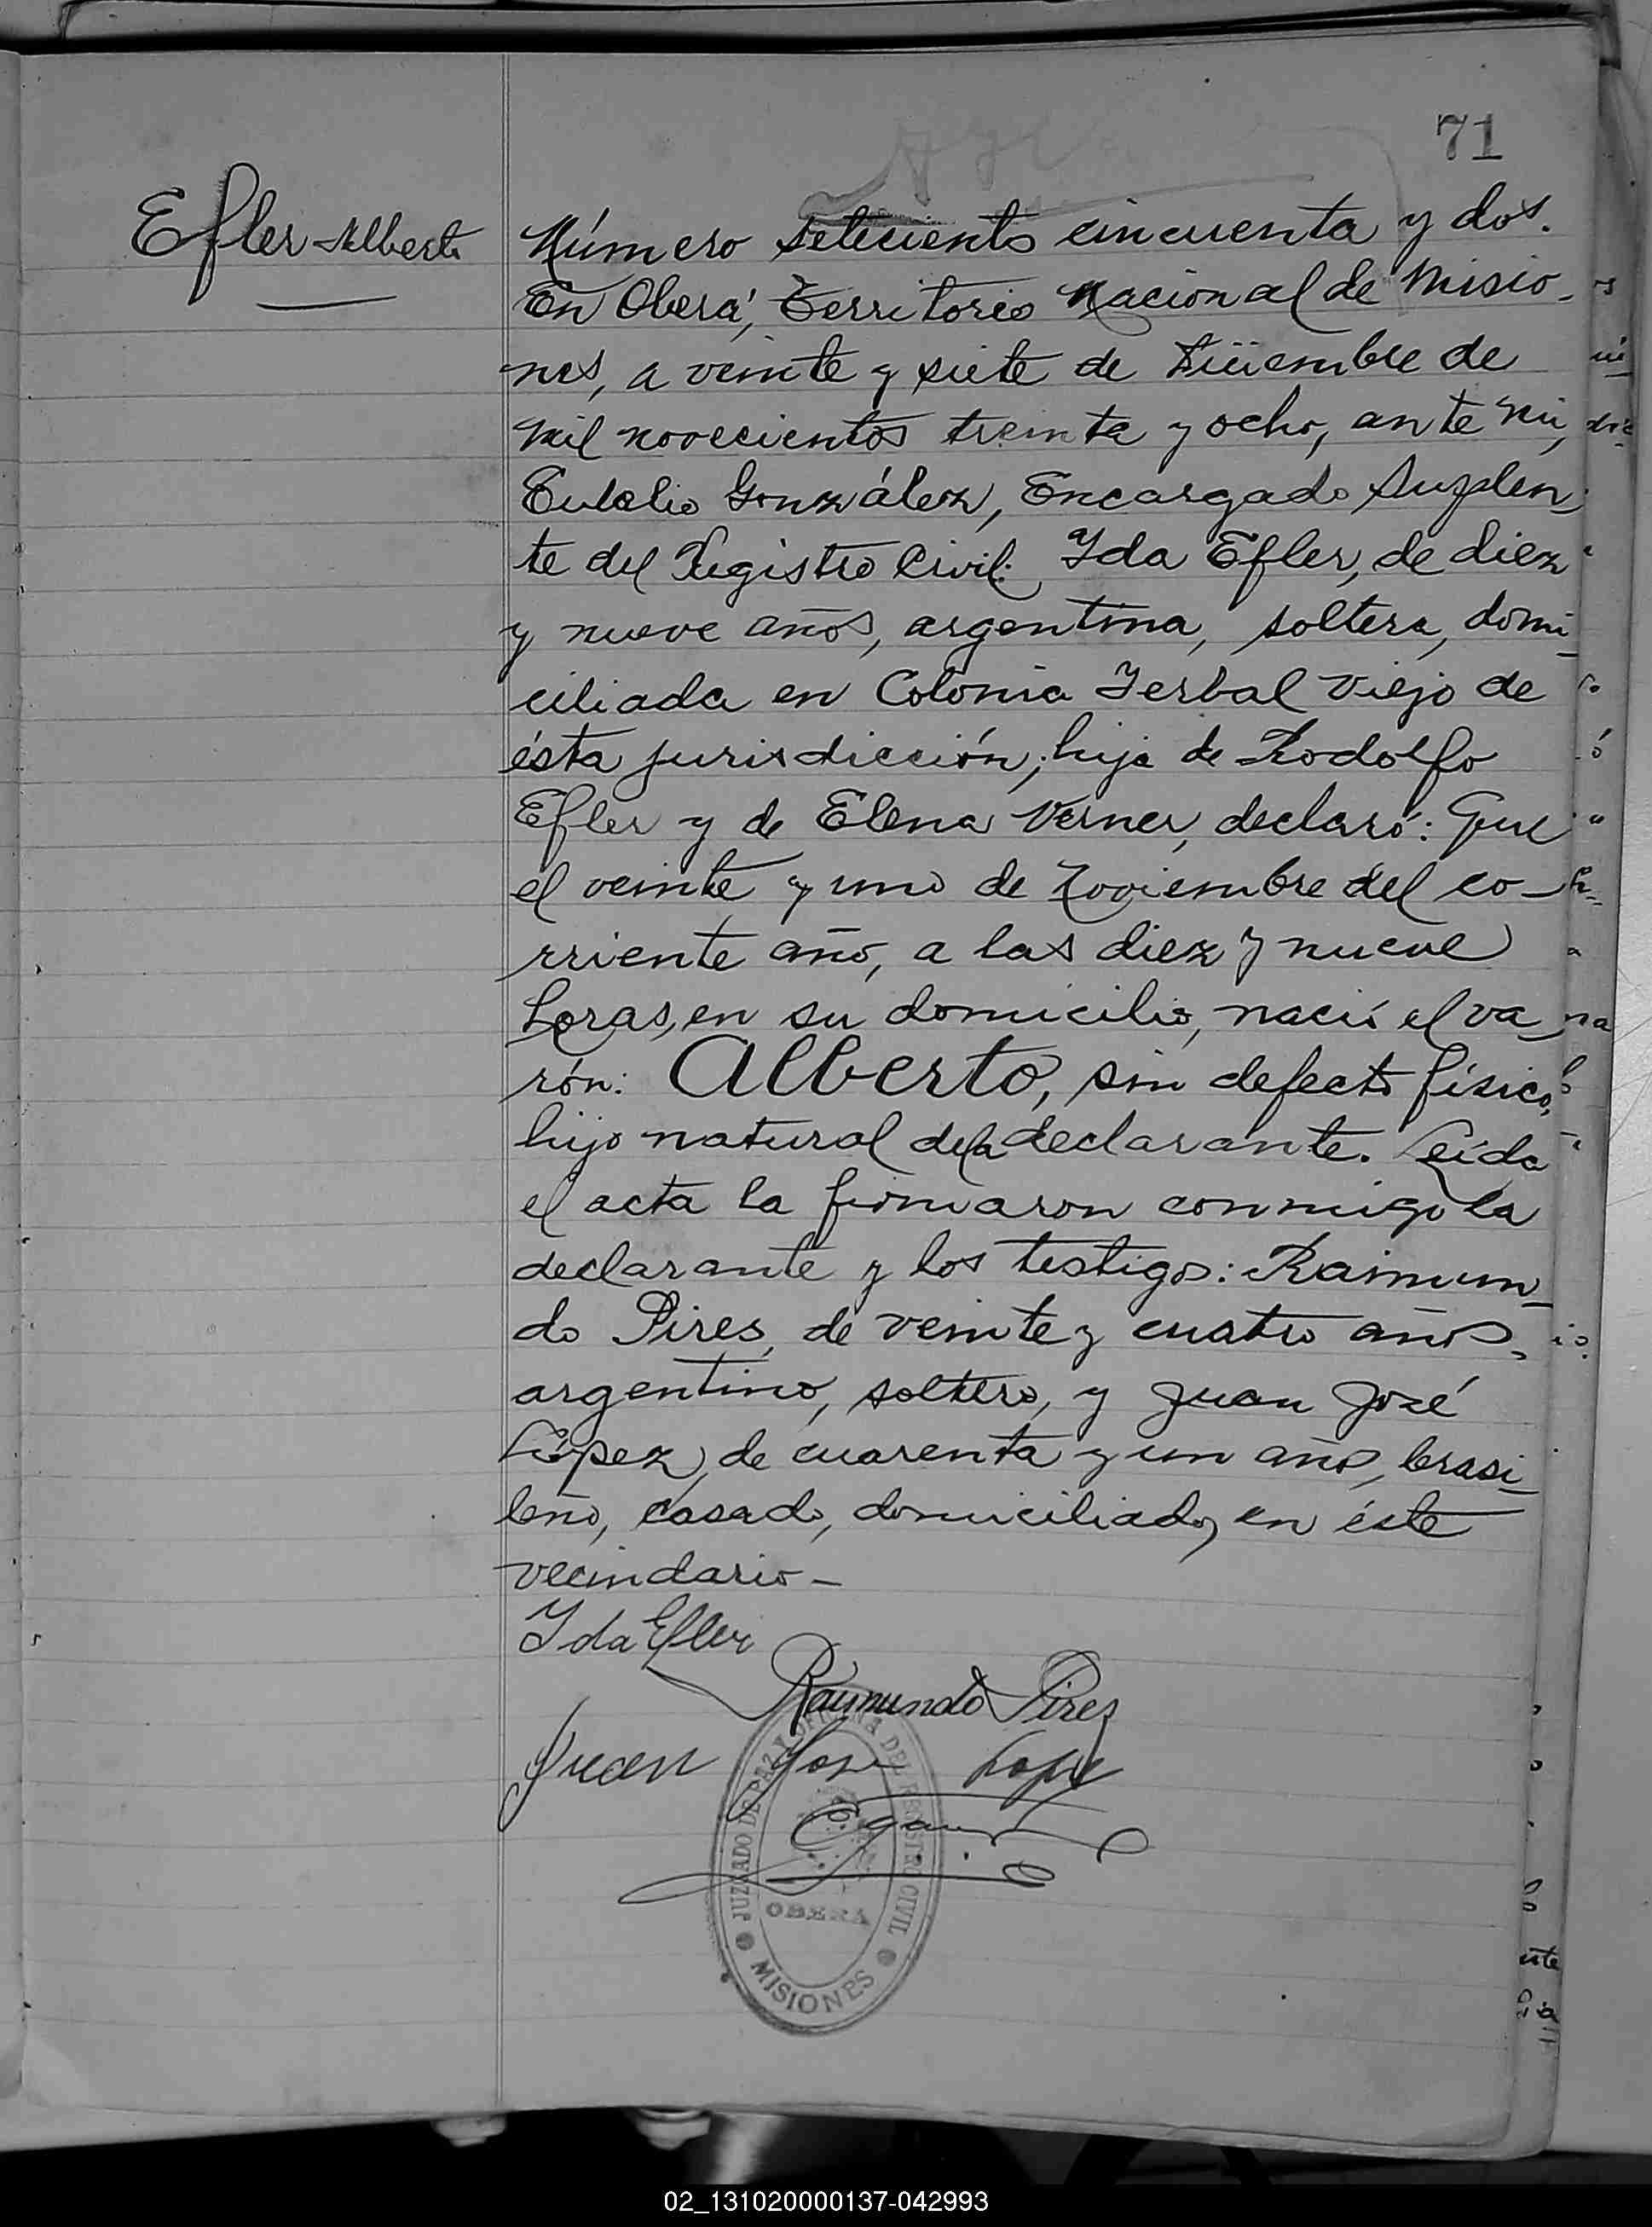 71
Efler Alberto
Número setecientos cincuenta y dos.
En Oberá, Territorio Nacional de Misio-
nes, a veinte y siete de Diciembre de
mil novecientos treinta y ocho, ante mí,
Eulalio González, Encargado Suplen-
te del Registro Civil: Ida Efler, de diez
y nueve años, argentina, soltera, domi-
ciliada en Colonia Yerbal Viejo de
ésta jurisdicción; hija de Rodolfo
Efler y de Elena Verner, declaró: Que
el veinte y uno de Noviembre del co-
rriente año, a las diez y nueve
horas, en su domicilio, nació el va
rón: Alberto, sin defecto físico,
hijo natural de la declarante. Leída
el acta la firmaron conmigo la
declarante y los testigos: Raimun-
do Pires, de veinte y cuatro años,
argentino, soltero, y Juan José
López, de cuarenta y un años, brasi-
leño, casado, domiciliados en éste
vecindario-
Ida Efler
Raymundo Pires
Juan Jose Lope
JUZGADO DE PAZ Y OFICINA DEL REGISTRO CIVIL
OBERA
MISIONES
02_131020000137-042993